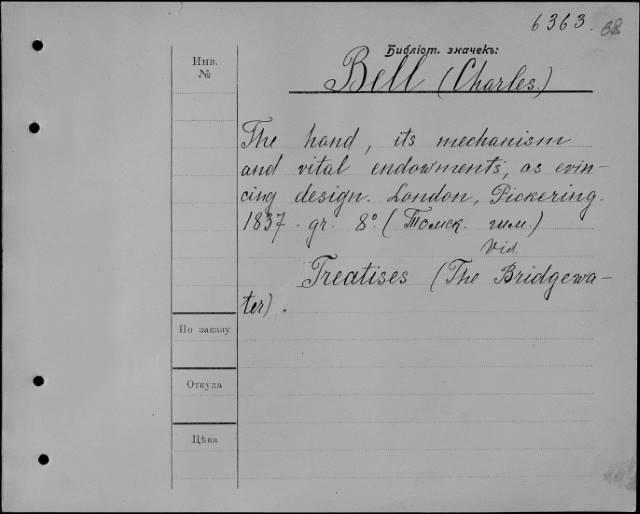 6363. 68
Библіот. значекъ:
Инв.
№
Bell (Charles.)
The hand, its mechanism
and vital endowments, as evin-
cing design. London, Pickering.
1837. gr. 8º. (Томск. гим.)
Vid.
Treatises (The Bridgewa-
ter).
По заказу
Откуда
Цѣна